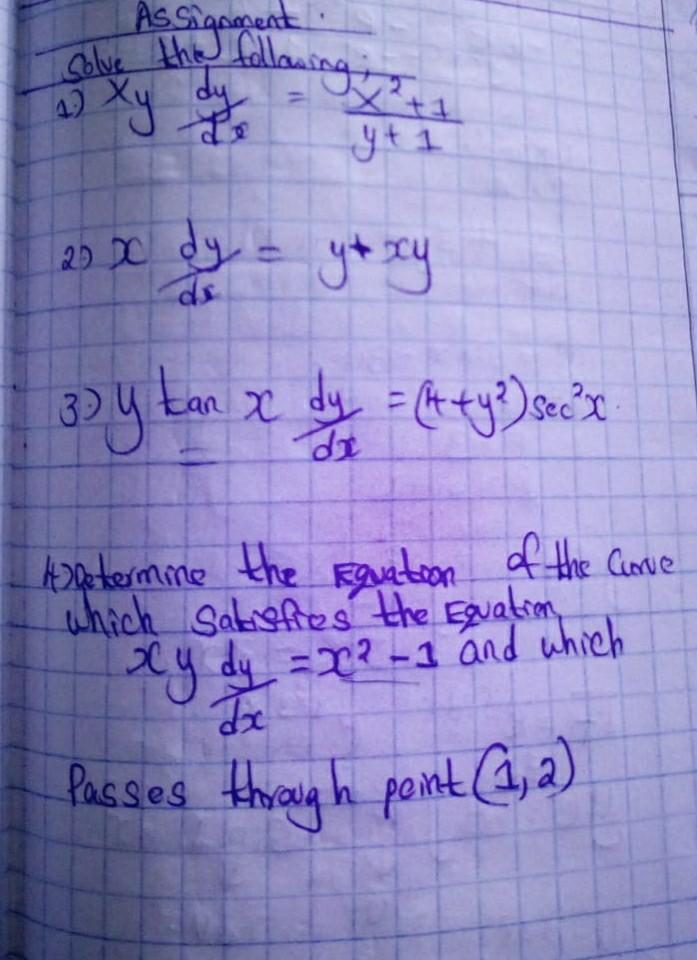 Assignment.
Solve the following;
1) xy dy/dx = x²+1/y+1
2) x dy/dx = y + xy
3) y tan x dy/dx = (4+y²) sec²x.
4) Determine the Equation of the Curve
which satisfies the Equation
xy dy/dx = x² - 1 and which
Passes through point (1,2)